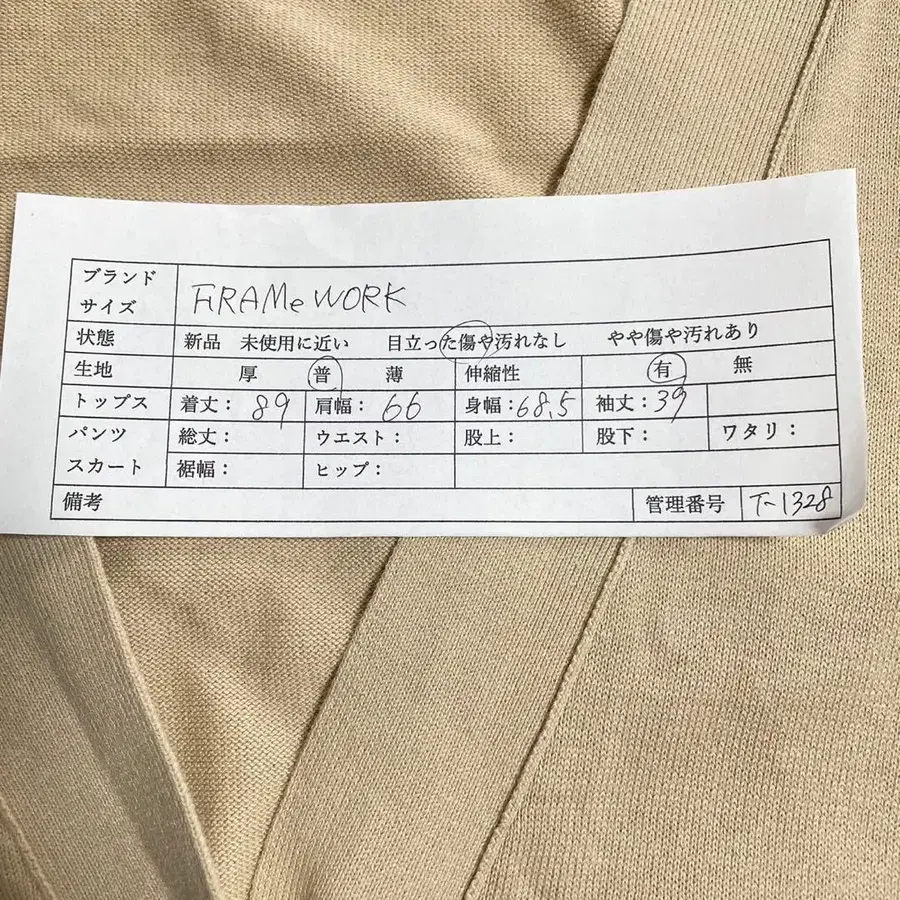 ブランド
サイズ FRAMe WORK
状態 新品 未使用に近い 目立った傷や汚れなし やや傷や汚れあり
生地 厚 普 薄 伸縮性 有 無
トップス 着丈: 89 肩幅: 66 身幅: 68,5 袖丈: 39
パンツ 総丈: ウエスト: 股上: 股下: ワタリ:
スカート 裾幅: ヒップ:
備考 管理番号 T-1328